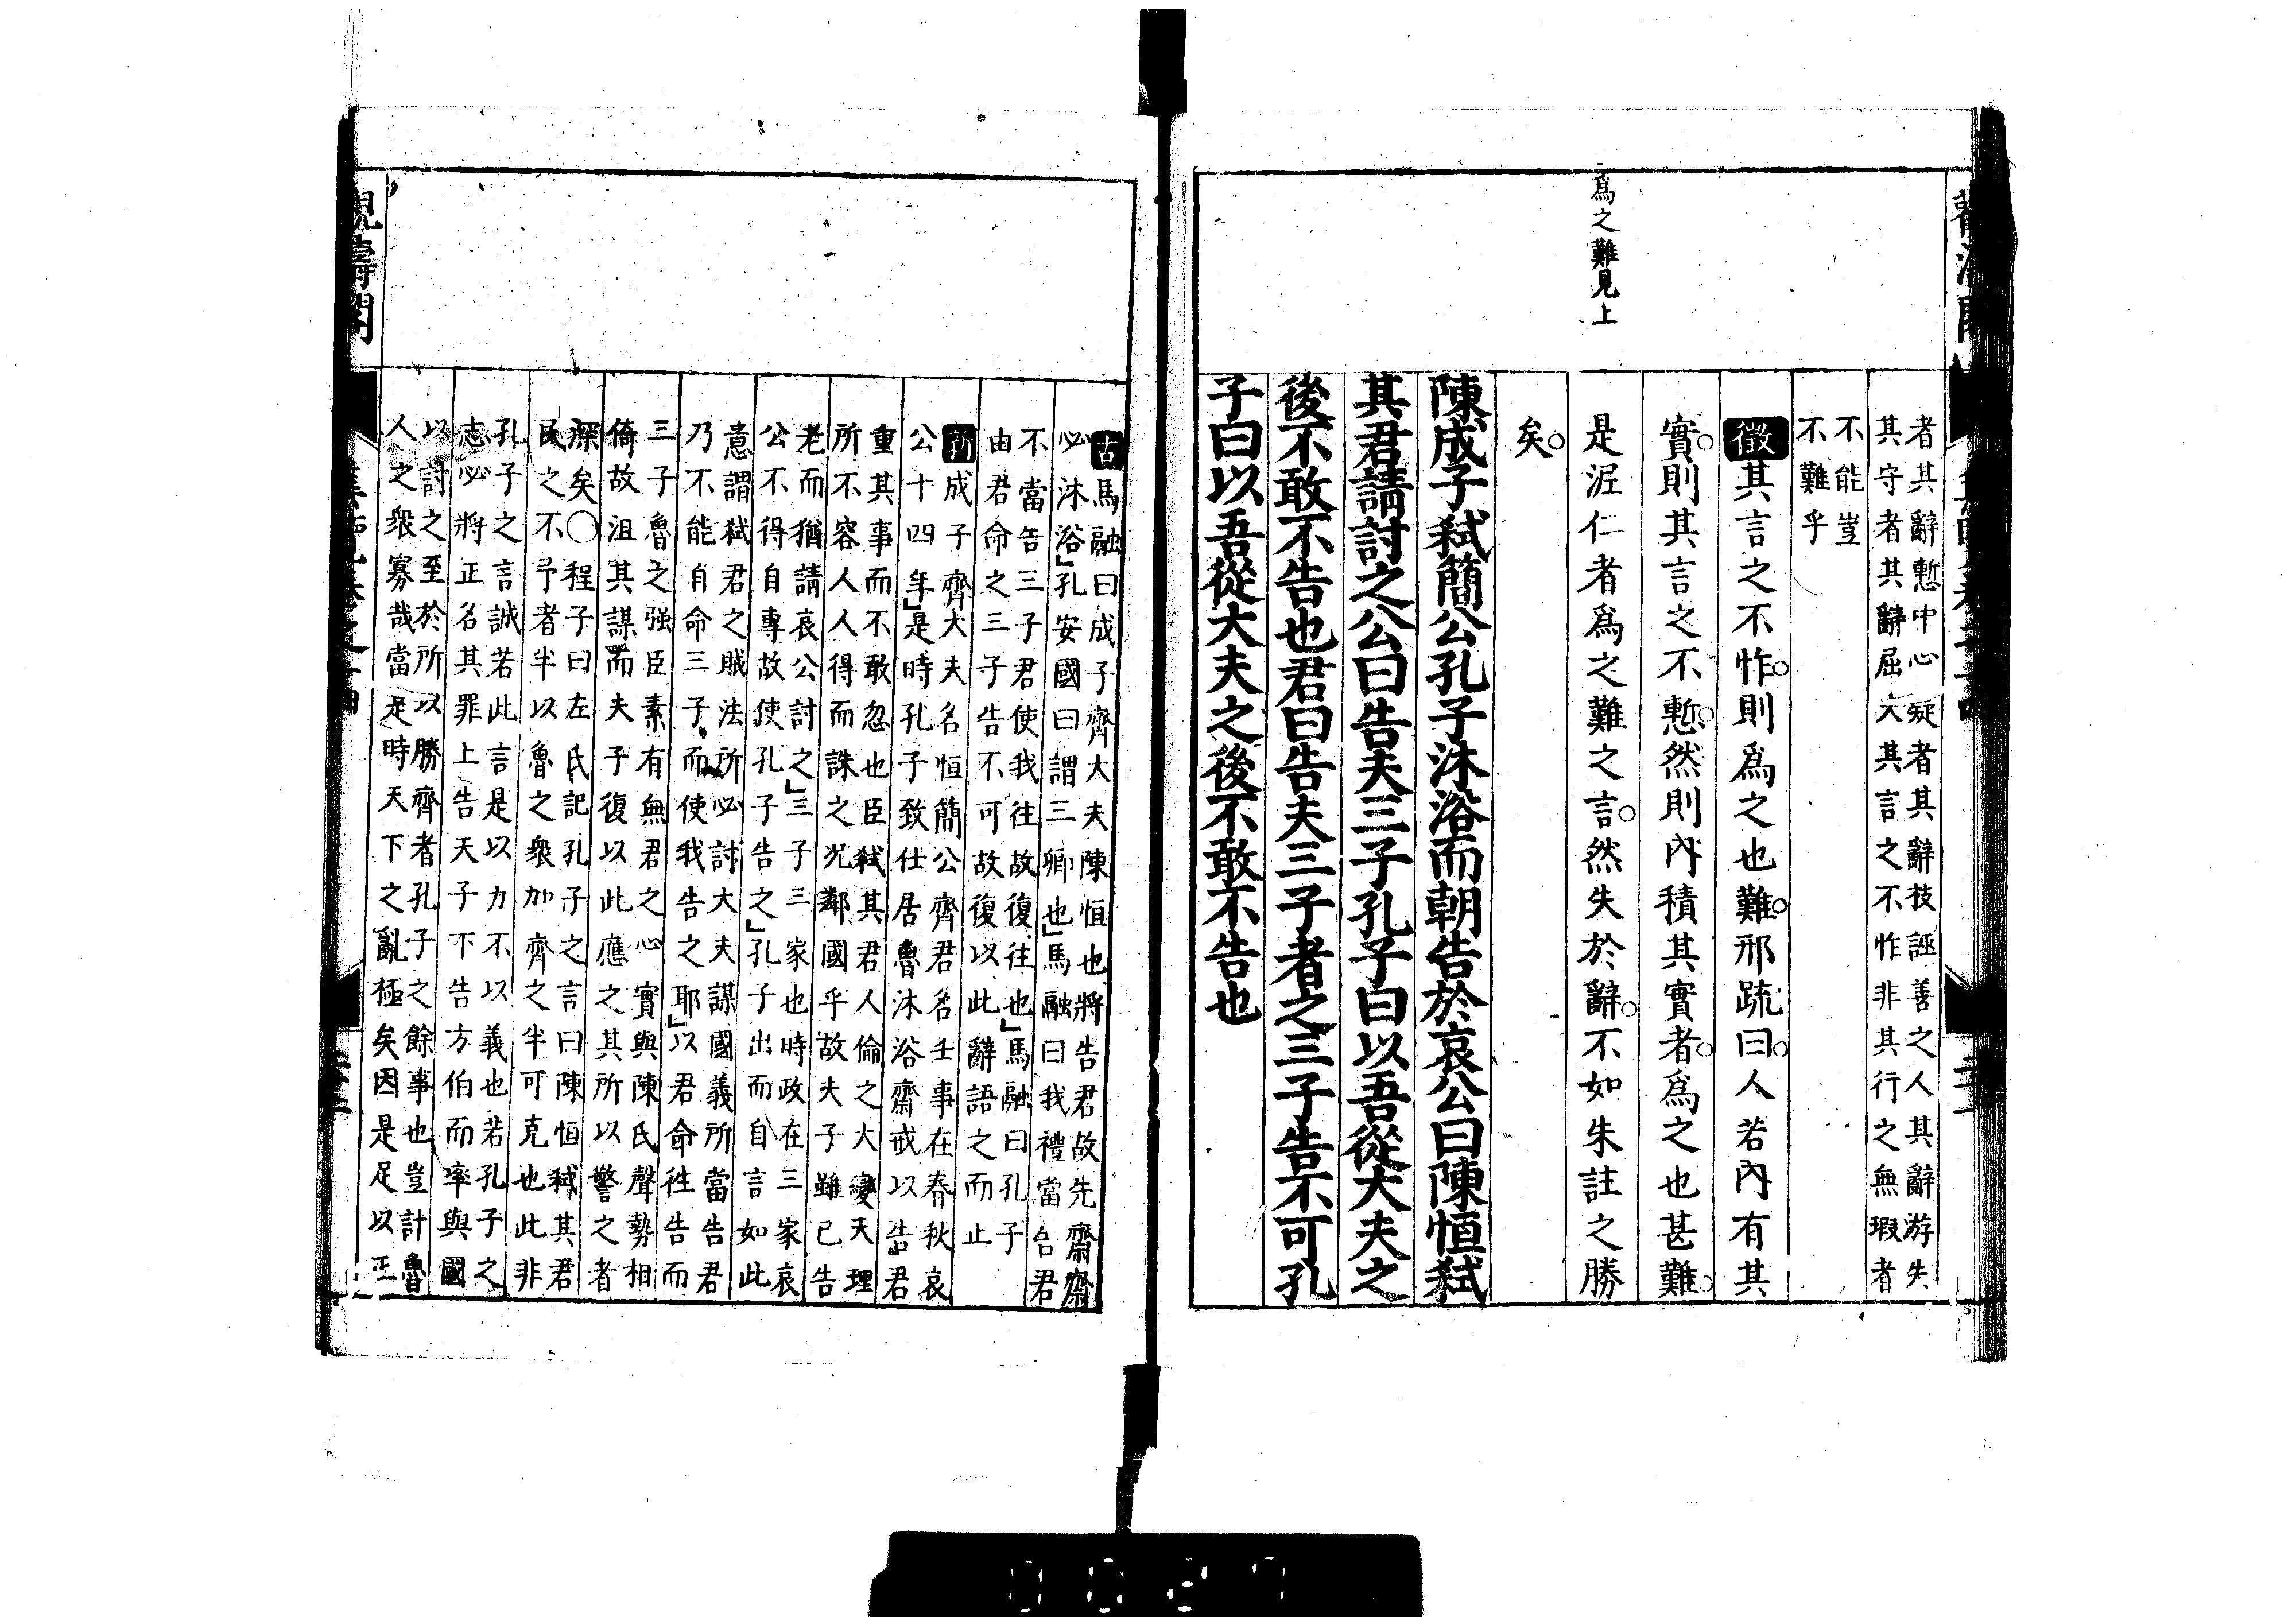 爲之難見上
者其辭慙中心疑者其辭枝誣善之人其辭游失
其守者其辭屈大其言之不怍非其行之無瑕者
不能豈
不難乎
徵其言之不怍則爲之也難邢疏曰人若內有其
實則其言之不慙然則內積其實者爲之也甚難
是泥仁者爲之難之言然失於辭不如朱註之勝
矣
陳成子弑簡公孔子沐浴而朝告於哀公曰陳恒弑
其君請討之公曰告夫三子孔子曰以吾從大夫之
後不敢不告也君曰告夫三子者之三子告不可孔
子曰以吾從大夫之後不敢不告也
古馬融曰成子齊大夫陳恒也將告君故先齋齋
必沐浴孔安國曰謂三卿也馬融曰我禮當告君
不當告三子君使我往故復往也馬融曰孔子
由君命之三子告不可故復以此辭語之而止
新成子齊大夫名恒簡公齊君名壬事在春秋哀
公十四年是時孔子致仕居魯沐浴齋戒以告君
重其事而不敢忽也臣弑其君人倫之大變天理
所不容人人得而誅之况鄰國乎故夫子雖已告
老而猶請哀公討之三子三家也時政在三家哀
公不得自專故使孔子告之孔子出而自言如此
意謂弑君之賊法所必討大夫謀國義所當告君
乃不能自命三子而使我告之耶以君命往告而
三子魯之强臣素有無君之心實與陳氏聲勢相
倚故沮其謀而夫子復以此應之其所以警之者
深矣○程子曰左氏記孔子之言曰陳恒弑其君
民之不予者半以魯之衆加齊之半可克也此非
孔子之言誠若此言是以力不以義也若孔子之
志必將正名其罪上告天子下告方伯而率與國
以討之至於所以勝齊者孔子之餘事也豈計魯
人之衆寡哉當是時天下之亂極矣因是足以正
觀濤閣